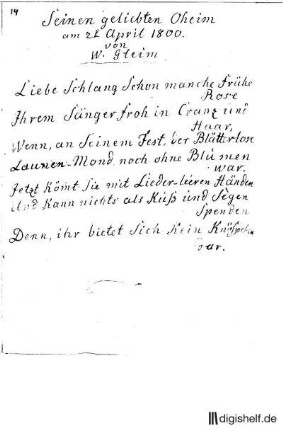 14
Seinen geliebten Oheim
am 2t April 1800.
von
W. Gleim
Liebe Schlang Schon manche frühe
Rose
Ihrem Sänger froh in Cranz und
Haar,
Wenn, an Seinem Fest, der Blätterlose
Launen-Mond noch ohne Blumen
war.
Jetzt kömt Sie mit Lieder-leeren Händen
Und Kann nichts als Kuß und Segen
Spenden
Denn, ihr bietet Sich Kein Knöspchen
dar.
digishelf.de